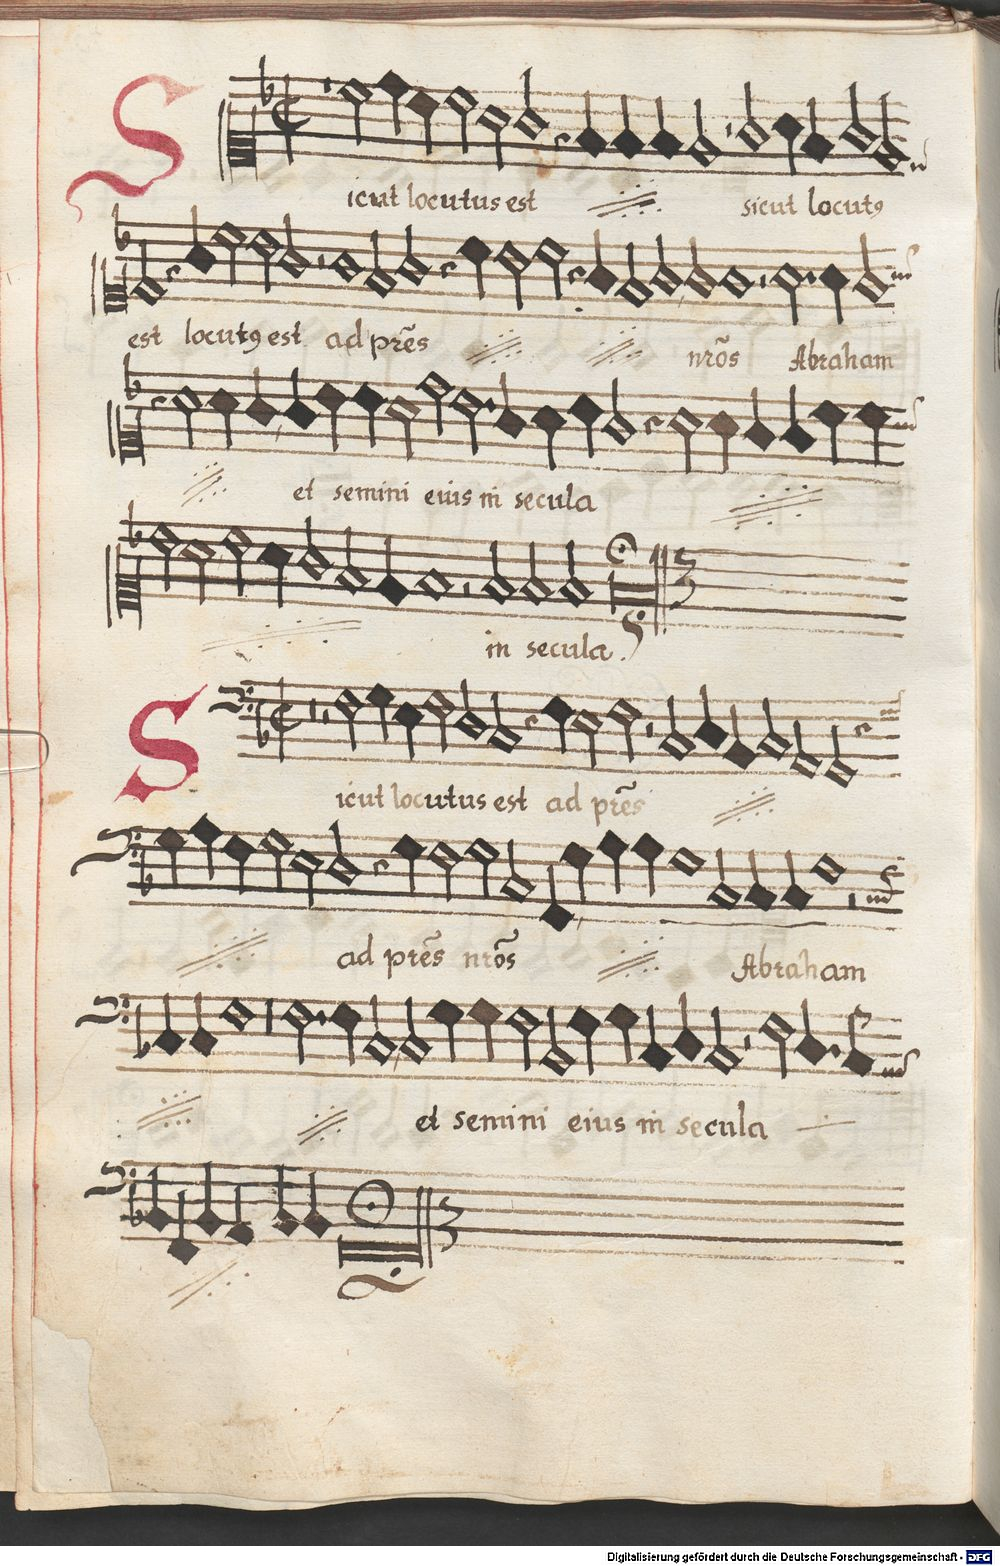 Sicut locutus est sicut locutꝯ
est locutꝯ est ad prẽs nrõs Abraham
et semini eius in secula
in secula.
Sicut locutus est ad prẽs
ad prẽs nrõs Abraham
et semini eius in secula
Digitalisierung gefördert durch die Deutsche Forschungsgemeinschaft - DFG